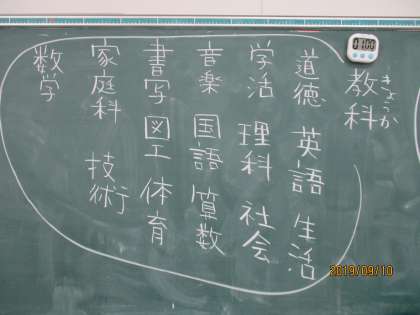 教科
きょうか
道徳 英語 生活
学活 理科 社会
音楽 国語 算数
書写 図工 体育
家庭科 技術
数学
0100
2019/09/10